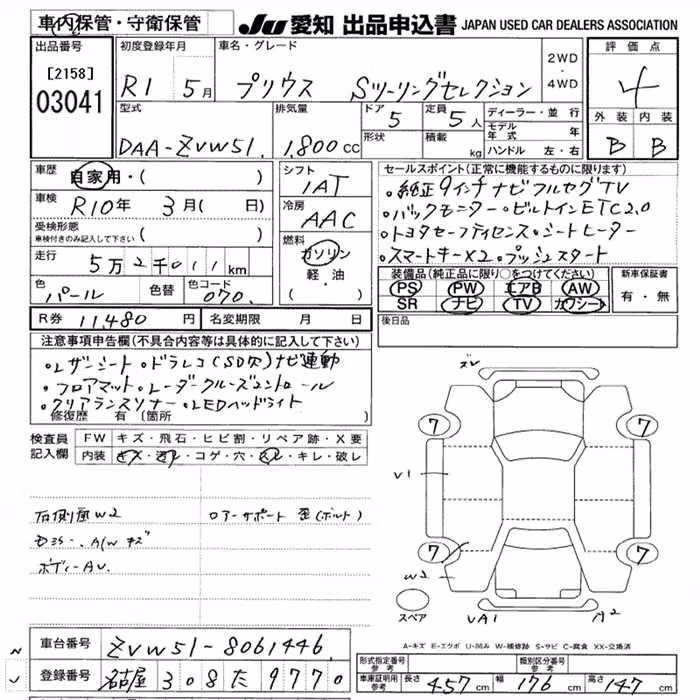 車内保管・守衛保管 JU愛知 出品申込書 JAPAN USED CAR DEALERS ASSOCIATION
出品番号 [2158] 03041
初度登録年月 R1 5月
車名・グレード プリウス Sツーリングセレクション
2WD・4WD
評価点 4
型式 DAA-ZVW51.
排気量 1.800cc
ドア 5 定員 5人
形状 積載 kg
ディーラー・並行
モデル年式 年
ハンドル 左・右
外装 内装
B B
車歴 自家用・( )
車検 R10年 3月( 日)
受検形態 車検付きのみ記入して下さい ( )
走行 5万2千011km
色 パール 色替 色コード 070.
シフト IAT
冷房 AAC
燃料 ガソリン 軽・油 ( )
セールスポイント(正常に機能するものに限ります)
・純正9インチナビフルセグTV
・バックモニター・ビルトインETC2.0
・トヨタセーフティセンス・シートヒーター
・スマートキーX2・プッシュスタート
装備品(純正品に限り○をつけてください) 新車保証書
PS PW エアB AW
SR ナビ TV カワシート
有・無
R券 11,480円 名変期限 月 日
後日品
注意事項申告欄(不具合内容等は具体的に記入して下さい)
・レザーシート・ドラレコ(SD欠)ナビ連動
・フロアマット・レーダークルーズコントロール
・クリアランスソナー・LEDヘッドライト
修復歴 有 (箇所 )
検査員記入欄 FW キズ・飛石・ヒビ割・リペア跡・X要
内装 キズ・汚レ・コゲ・穴・スレ・キレ・破レ
右側面W2 ロアーサポート 歪(ボルト)
A/W キズ
ボディーAU.
ズレ
7 7
V1
7 7
W2
スペア UA1 A2
A-キズ E-エクボ U-凹み W-補修跡 S-サビ C-腐食 XX-交換済
車台番号 ZVW51-8061446.
登録番号 名古屋 308 た 9770
形式指定番号 参考 類別区分番号 参考
車庫証明用 参考 長さ 457cm 幅 176cm 高さ 147cm